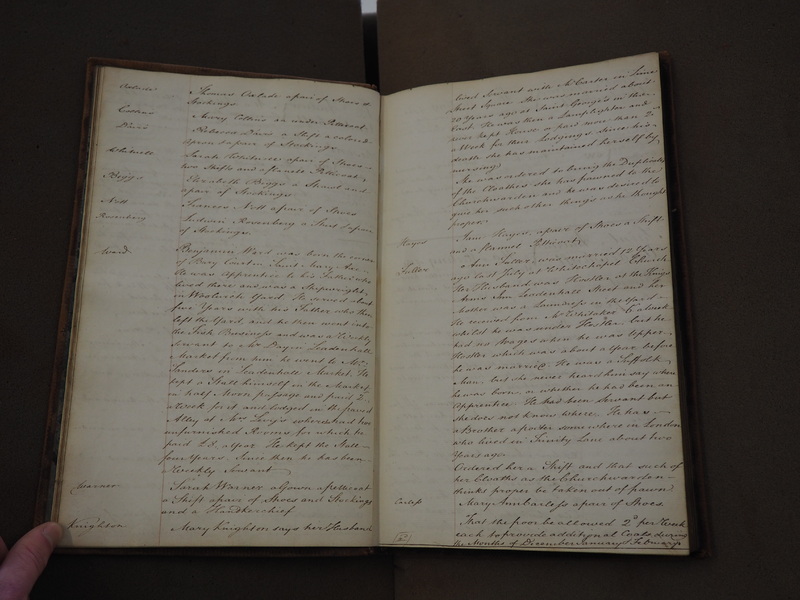 Thomas Oxlade a pair of Shoes &
Stockings
Mary Collins an under Petticoat
Rebecca Davis a Shift a colored
Apron & a pair of Stockings
Sarah Whitlock a pair of Shoes
two Shifts and a Flannel Petticoat
Biggs Elizabeth Biggs a Shawl and
a pair of Stockings
Nott Frances Nott a pair of Shoes
Rosenberg Rosenberg a Shirt & pair
of Stockings
Ward Benjamin Ward was born the corner
of Bury Court in Saint Mary Axe
He was apprentice to his Father who
lived there and was a Shipwright
in Woolwich Yard. He served about
five Years with his Father who then
left the Yard, and he then went into
the Fish Business and was a Weekly
Servant to Mr Leadenhall
Market from him he went to Mr
Sanders in Leadenhall Market. He
kept a Stall himself in the Market
in half Moon passage and paid
a Week for it and lodged in the paved
Alley at Mrs Levy's where he had two
unfurnished Rooms for which he
paid a Year. He kept the Stall
four Years. Since then he has been
Weekly Servant
Warner Sarah Warner a Gown a petticoat
a Shift a pair of Shoes and Stockings
and a Handkerchief
Knighton Mary Knighton says her Husband
lived Servant with Mr Carter in Lime
Street Square She was married about
20 Years ago at Saint George's in the
East. He was then a Lamplighter and
never kept House or paid more than
a Week for their Lodgings since his
death she has maintained herself by
nursing
He was ordered to bring the Duplicates
of the Cloathes she has pawned to the
Churchwarden and he was desired to
give her such other things as he thought
proper
Hayes Ann Hayes, a pair of Shoes a Shift
and a flannel Petticoat
Fuller Ann Fuller was married 12 Years
ago last July at Whitechapel Church
Her Husband was Hostler at the Kings
Arms Inn Leadenhall Street and her
Mother was a Laundress in the Yard
He received from Mr Whitaker a Week
whilst he was under Hostler, but he
had no Wages when he was upper
Hostler which was about a Year before
he was married. He was a Suffolk
Man, but she never heard him say where
he was born, or whether he has been an
Apprentice. He had been Servant but
she does not know where. He has
a Brother a porter somewhere in London
who lived in Trinity Lane about two
Years ago
Ordered her a Shift and that such of
her Cloaths as the Churchwarden
thinks proper be taken out of pawn
Mary Ann a pair of Shoes
That the poor be allowed 2d per Week
each to provide additional Coals during
the Months of December January & February